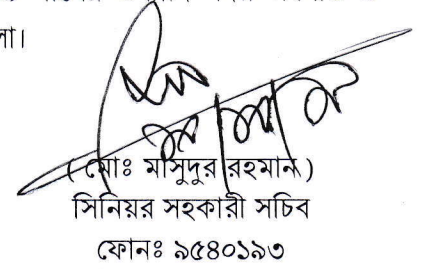 লা।
( মোঃ মাসুদুর রহমান )
সিনিয়র সহকারী সচিব
ফোনঃ ৯৫৪০১৯৩